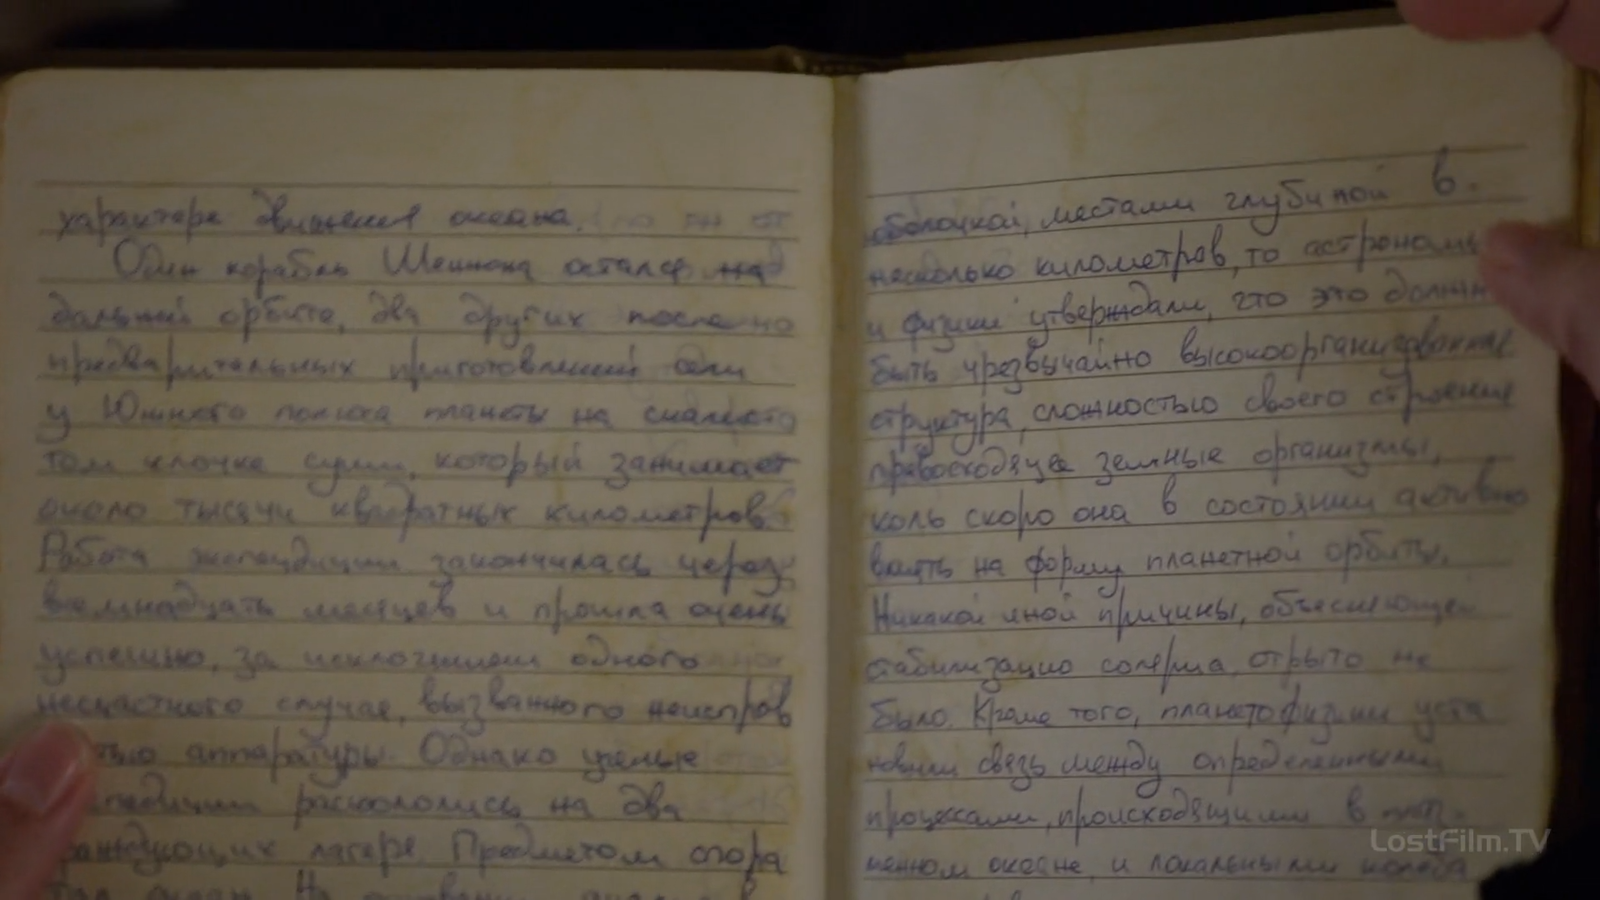 характере движения океана.
Один корабль Шеннона остался на
дальней орбите, два других после но
предварительных приготовлений сели
у Южного полюса планеты на скалисто
том клочке суши, который занимает
около тысячи квадратных километров.
Работа экспедиции закончилась через
восемнадцать месяцев и прошла очень
успешно, за исключением одного
несчастного случая, вызванного неисправ
стью аппаратуры. Однако ученые
педиции раскололись на два
раждующих лагеря. Предметом спора
океан. На основании анализов
оболочкой, местами глубиной в
несколько километров, то астрономы
и физики утверждали, что это должн
быть чрезвычайно высокоорганизованная
структура, сложностью своего строения
превосходящее земные организмы,
коль скоро она в состоянии активно
влиять на форму планетной орбиты.
Никакой иной причины, объясняющей
стабилизацию соляриса, отрыто не
было. Кроме того, планетофизики уста
новили связь между определенными
процессами, происходящими в
менном океане, и локальными колеба
LostFilm.TV